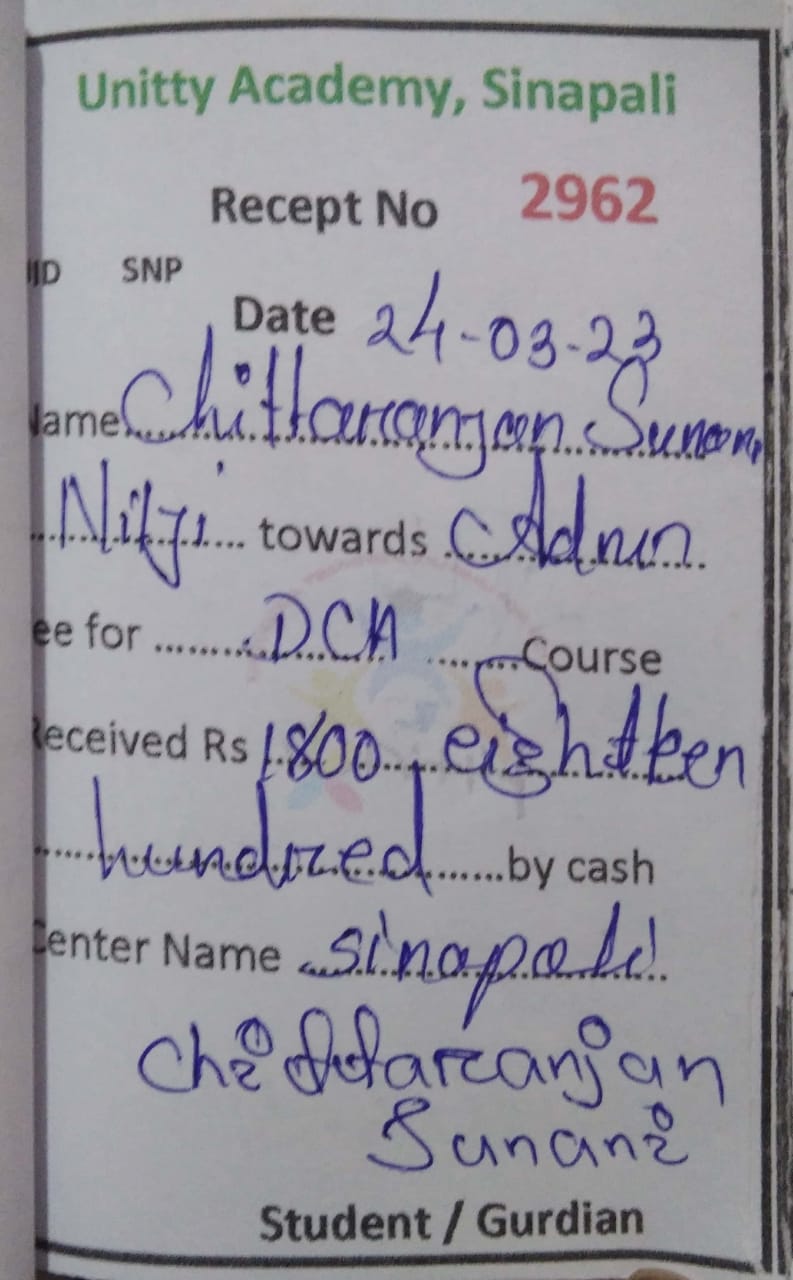 Unitty Academy, Sinapali
Recept No 2962
ID SNP
Date 24-03-23
Name Chittaranjan Sunani
towards Admn
ee for DCA Course
Received Rs 1800 eighteen
hundred by cash
Center Name Sinapali
Chittaranjan
Sunani
Student / Gurdian